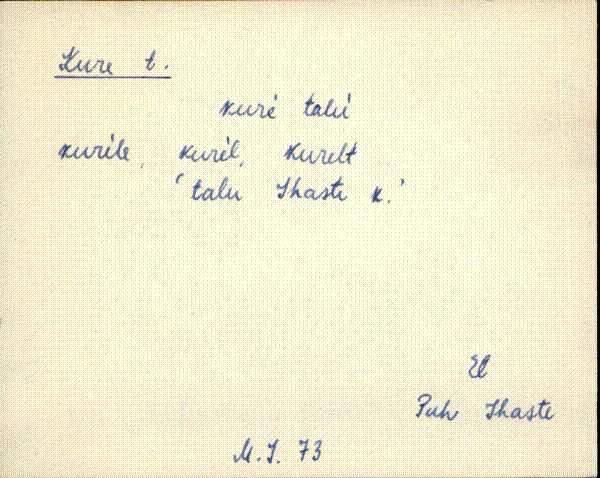 Kure t.
kuré talú
kuréle, kurél, kurelt
'talu Ihaste k.'
El
Puh Ihaste
M.I. 73